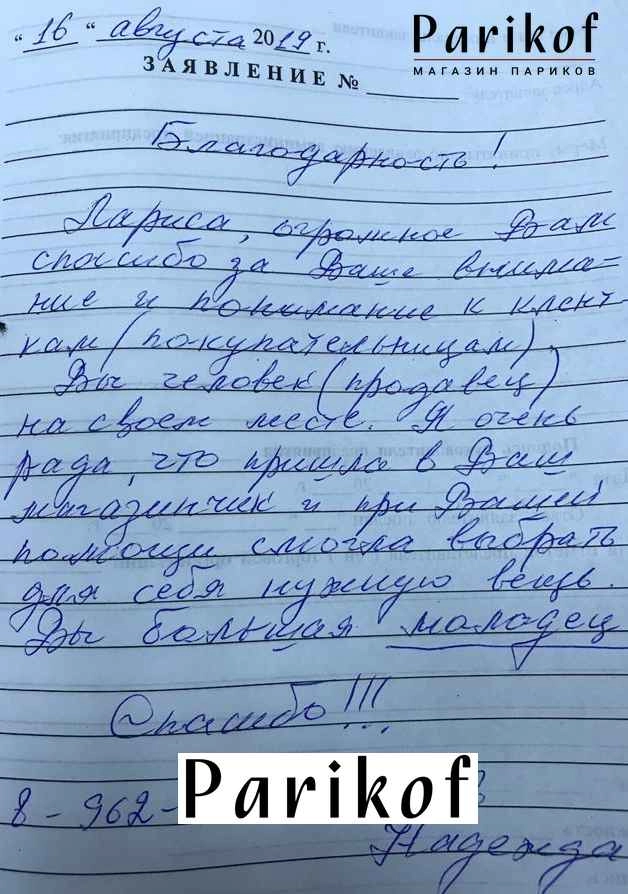 Parikof
МАГАЗИН ПАРИКОВ
"16" августа 2019 г.
ЗАЯВЛЕНИЕ №
Благодарность!
Лариса, огромное Вам
спасибо за Ваше внима=
ние и понимание к клент
кам (покупательницам).
Вы человек (продавец)
на своем месте. Я очень
рада, что пришла в Ваш
магазинчик и при Вашей
помощи смогла выбрать
для себя нужную вещь.
Вы большая молодец
Спасибо!!!
Parikof
8-962-
Надежда